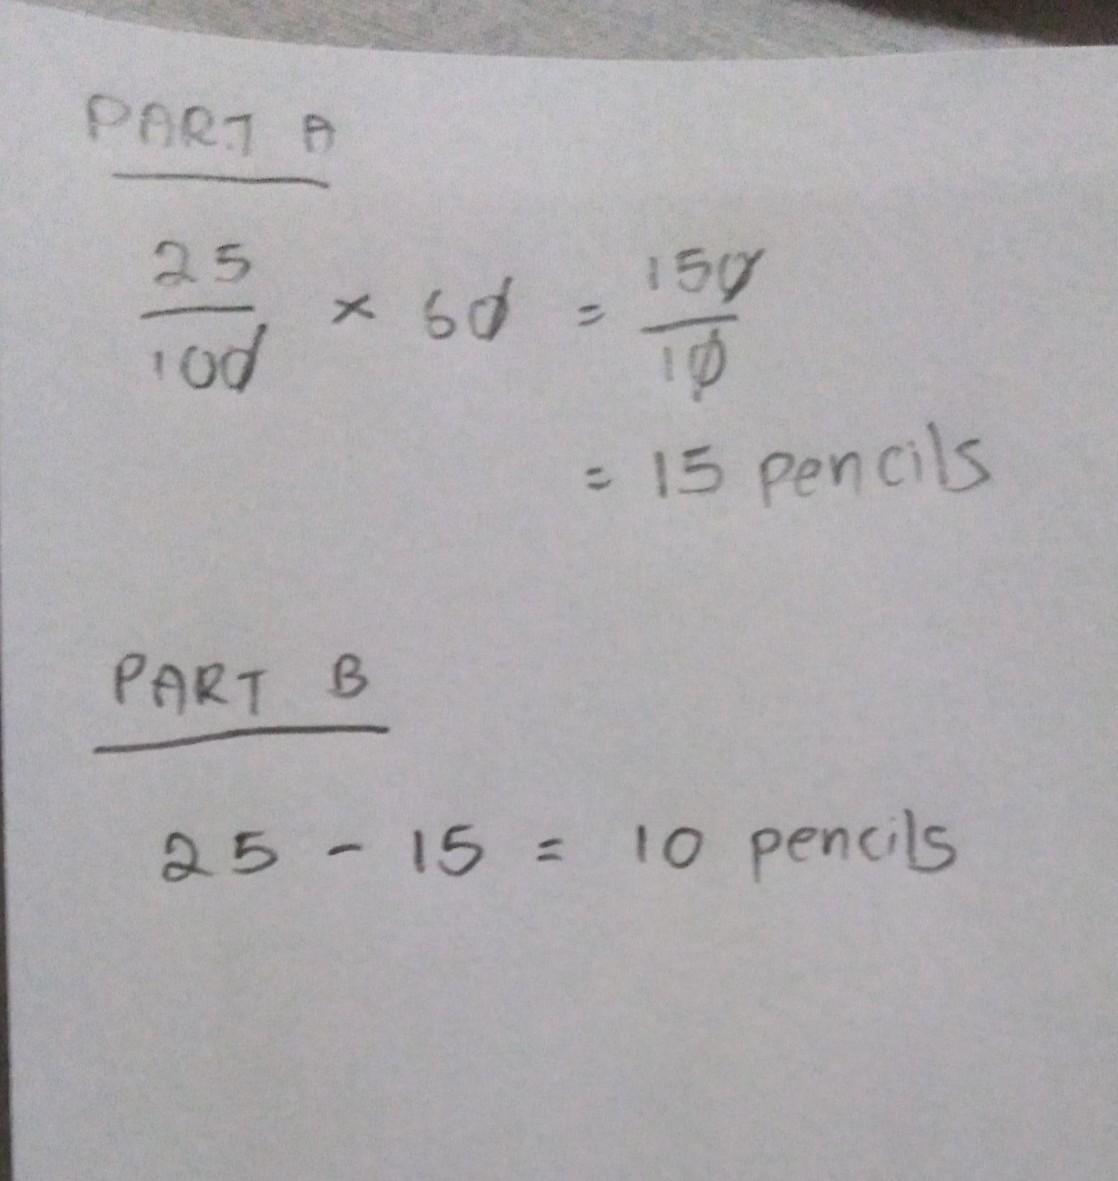 PART A
25/100 × 60 = 150/10
= 15 pencils
PART B
25 - 15 = 10 pencils